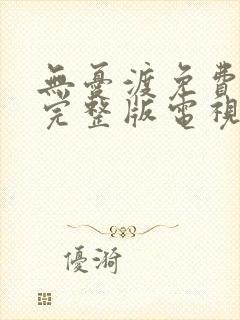 無憂渡免費
完整版電視
優漪